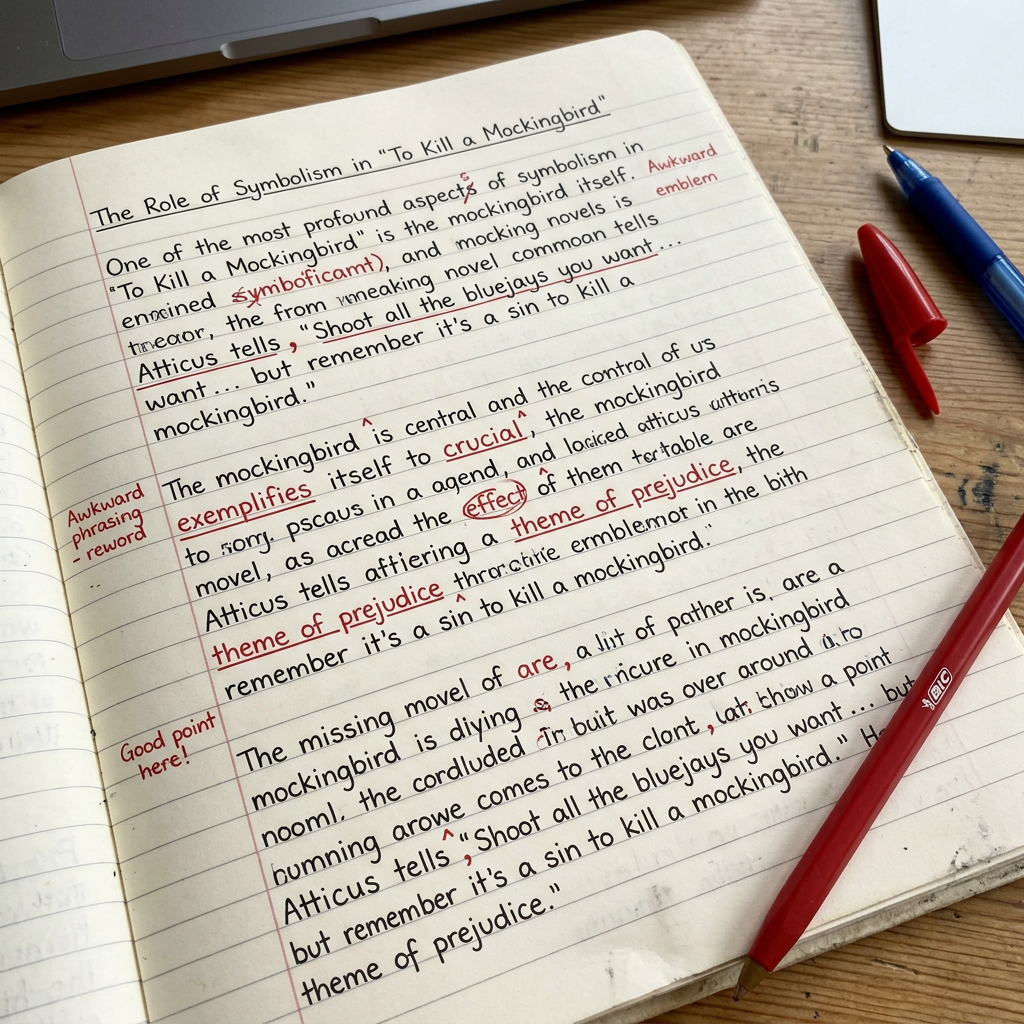 The Role of Symbolism in "To Kill a Mockingbird"
One of the most profound aspects of symbolism in
"To Kill a Mockingbird" is the mockingbird itself.
Awkward
emblem
and mocking novels is
the from novel commoan tells
Atticus tells, "Shoot all the bluejays you want...
want... but remember it's a sin to kill a
mockingbird."
The mockingbird is central and the control of us
exemplifies itself to crucial, the mockingbird
to pscaus in a agend, and atticus
movel, as acread the effect of them are
Atticus tells affiering a theme of prejudice, the
theme of prejudice in the bith
remember it's a sin to kill a mockingbird."
Awkward
phrasing
- reword
The missing movel of are, a of pather is, are a
mockingbird is dlying the in mockingbird
nooml, the cordluded buit was over around to
arowe comes to the clont, a point
Atticus tells, "Shoot all the bluejays you want... but
but remember it's a sin to kill a mockingbird."
theme of prejudice."
Good point
here!
BIC